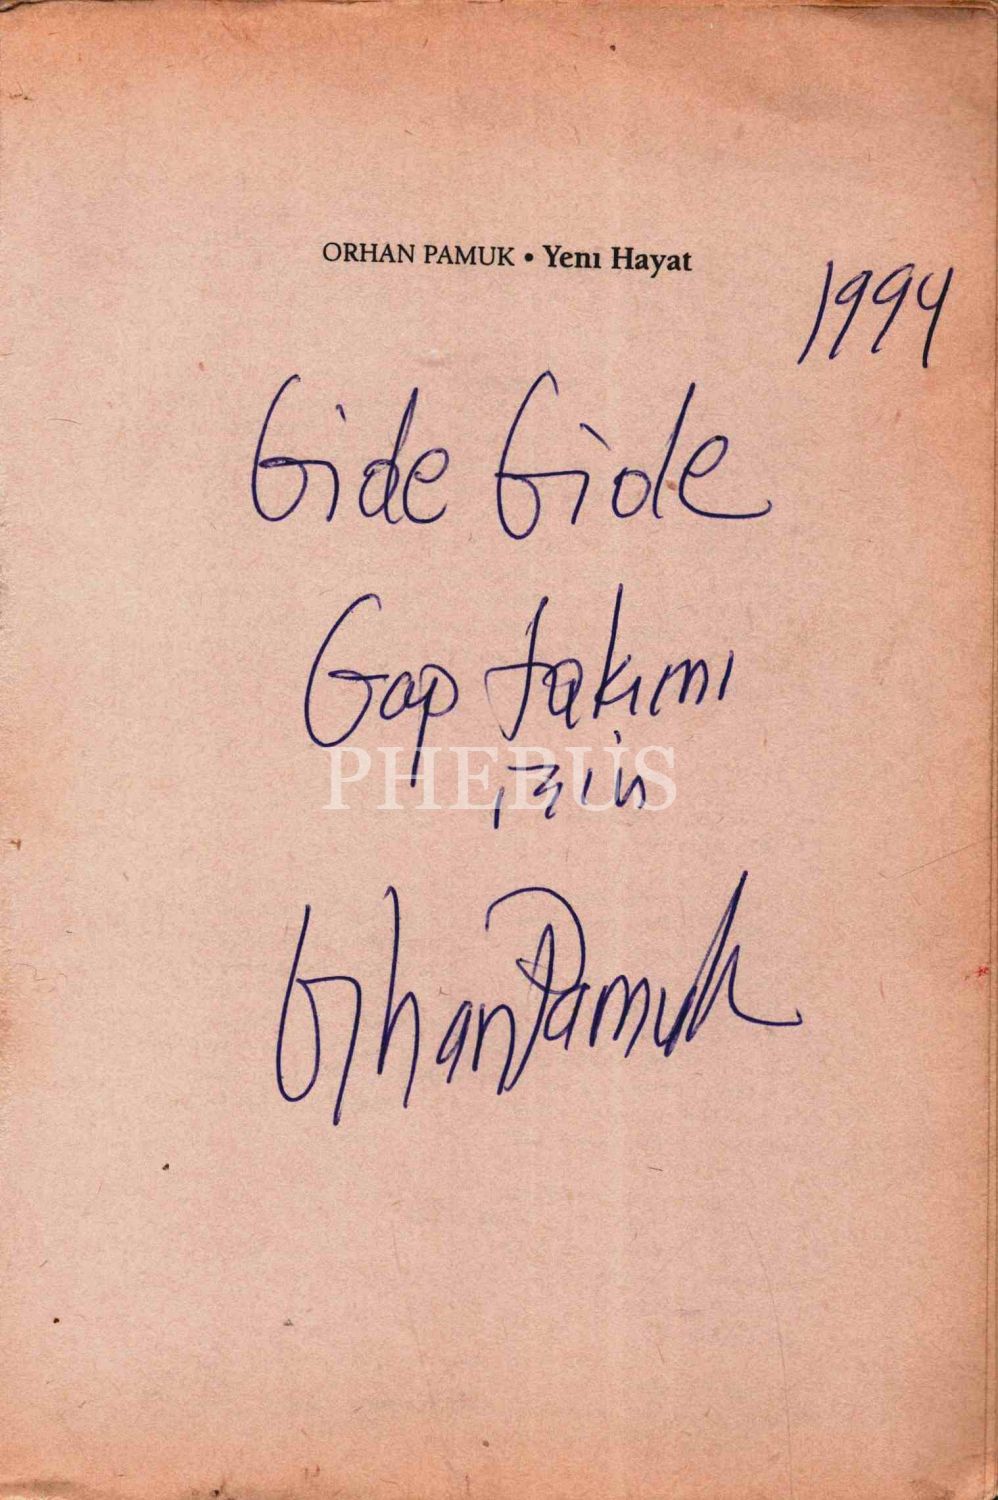 ORHAN PAMUK • Yeni Hayat
1994
Gide Gide
Gap takımı
için
PHEBUS
Orhan Pamuk